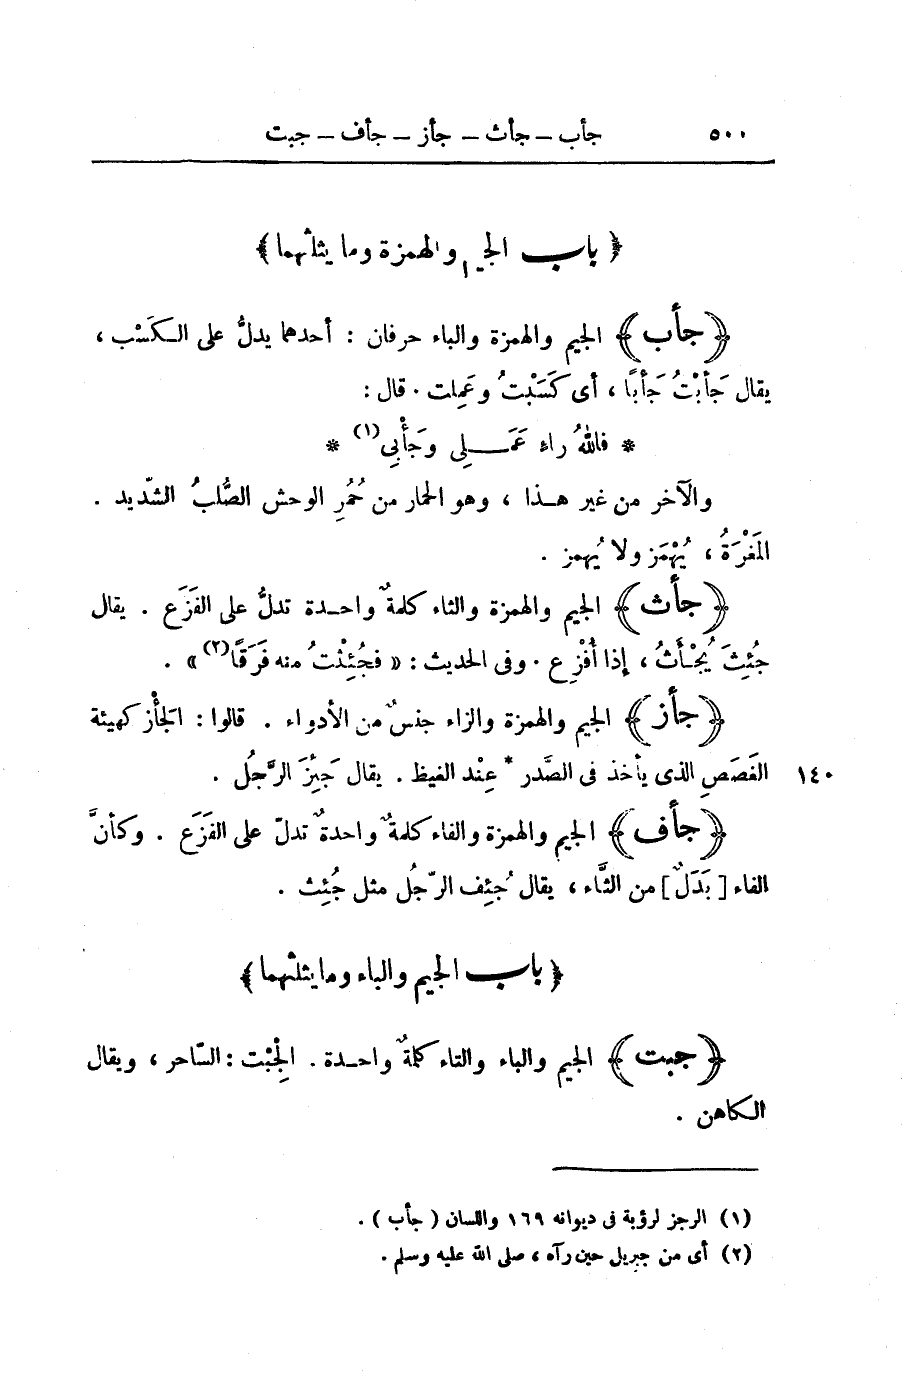 ٥٠٠ جأب – جأث – جأز – جأف – جبت
﴿ باب الجيم والهمزة وما يثلثهما ﴾
﴿ جأب ﴾ الجيم والهمزة والباء حرفان : أحدهما يدلُّ على الكَسْب ،
يقال جَأَبْتُ جَأْبًا ، أى كَسَبْتُ وعَمِلت . قال :
* فاللهُ راءٍ عَمَلِى وجَأْبِى(١) *
والآخر من غير هذا ، وهو الحمار من حُمُرِ الوحش الصُّلبُ الشّديد .
المَغْرَةُ ، يُهْمَز ولا يُهمز .
﴿ جأث ﴾ الجيم والهمزة والثاء كلمةٌ واحدة تدلُّ على الفَزَع . يقال
جُئِثَ يُجْأَثُ ، إذا أُفْزِع . وفى الحديث : « فجُئِثْتُ منه فَرَقًا(٢) » .
﴿ جأز ﴾ الجيم والهمزة والزاء جنسٌ من الأدواء . قالوا : الجَأْز كهيئة
١٤٠ الغَصَصِ الذى يأخذ فى الصَّدر * عِنْد الغيظ . يقال جَئِزَ الرَّجُل .
﴿ جأف ﴾ الجيم والهمزة والفاء كلمةٌ واحدةٌ تدلّ على الفَزَع . وكأنَّ
الفاء [ بَدَلٌ ] من الثَّاء ، يقال جُئِف الرّجُل مثل جُئِث .
﴿ باب الجيم والباء وما يثلثهما ﴾
﴿ جبت ﴾ الجيم والباء والتاء كلمةٌ واحدة . الْجِبْت : السّاحر ، ويقال
الكاهن .
(١) الرجز لرؤبة فى ديوانه ١٦٩ واللسان ( جأب ) .
(٢) أى من جبريل حين رآه ، صلى الله عليه وسلم .